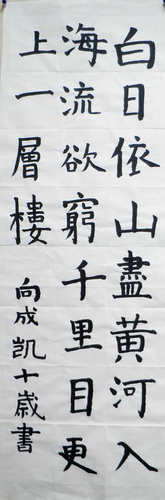 白日依山盡黃河入
海流欲窮千里目更
上一層樓
向成凯十歲書